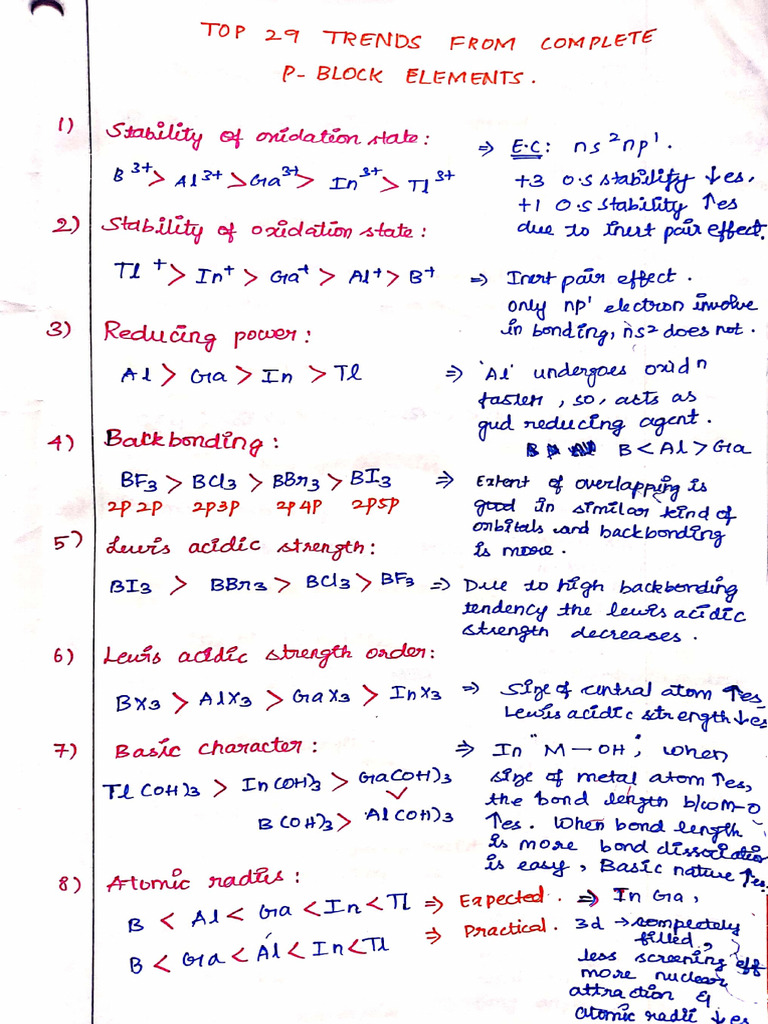 TOP 29 TRENDS FROM COMPLETE
P-BLOCK ELEMENTS.
1) Stability of oxidation state:
B³⁺ > Al³⁺ > Ga³⁺ > In³⁺ > Tl³⁺
⇒ E.C: ns²np¹.
+3 O.S stability ↓es.
+1 O.S stability ↑es
due to Inert pair effect.
2) Stability of oxidation state:
Tl⁺ > In⁺ > Ga⁺ > Al⁺ > B⁺
⇒ Inert pair effect.
only np¹ electron involve
in bonding, ns² does not.
3) Reducing power:
Al > Ga > In > Tl
⇒ 'Al' undergoes oxidn
faster, so, acts as
gud reducing agent.
B < Al > Ga
4) Backbonding:
BF₃ > BCl₃ > BBr₃ > BI₃
2p 2p 2p 3p 2p 4p 2p 5p
⇒ Extent of overlapping is
good in similar kind of
orbitals and backbonding
is more.
5) Lewis acidic strength:
BI₃ > BBr₃ > BCl₃ > BF₃
⇒ Due to high backbonding
tendency the lewis acidic
strength decreases.
6) Lewis acidic strength order:
BX₃ > AlX₃ > GaX₃ > InX₃
⇒ Size of central atom ↑es
Lewis acidic strength ↓es
7) Basic character:
Tl(OH)₃ > In(OH)₃ > Ga(OH)₃
B(OH)₃ > Al(OH)₃
⇒ In "M-OH", when
size of metal atom ↑es,
the bond length b/w M-O
↑es. When bond length
is more bond dissociation
is easy, Basic nature ↑es.
8) Atomic radius:
B < Al < Ga < In < Tl ⇒ Expected.
B < Ga < Al < In < Tl ⇒ Practical.
⇒ In Ga,
3d → completely
filled,
less screening eff
more nuclear
attraction &
atomic radii ↓es